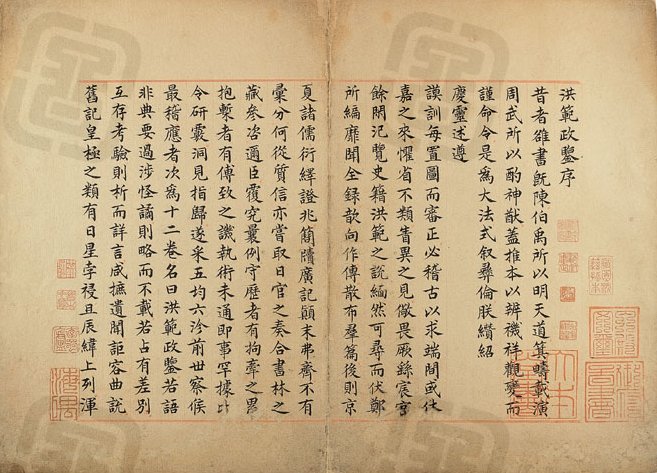 洪範政鑒序
昔者雒書既陳伯禹所以明天道箕疇載演
周武所以酌神猷蓋推本以辨禨祥觀變而
謹命令是為大法式叙彝倫朕纘紹
慶靈述遵
謨訓每置圖而審正必稽古以求端間或休
嘉之來懼省不類眚異之見儆畏厥繇宸宮
餘閑汜覽史籍洪範之說緬然可尋而伏鄭
所編靡聞全録歆向作傳散布羣篇後則京
夏諸儒衍繹證兆簡牘廣記顛末弗齊不有
彙分何從質信亦嘗取日官之奏合書林之
藏參咨邇臣覆究曩例守歷者有拘牽之累
抱槧者有傅致之譏執術未通即事罕據比
令研覈洞見指歸遂采五均六沴前世察候
最稽應者次為十二卷名曰洪範政鑒若語
非典要過涉怪譎則略而不載若占有差別
互存考驗則析而詳言咸摭遺聞詎容曲說
舊記皇極之類有日星孛祲且辰緯上列渾